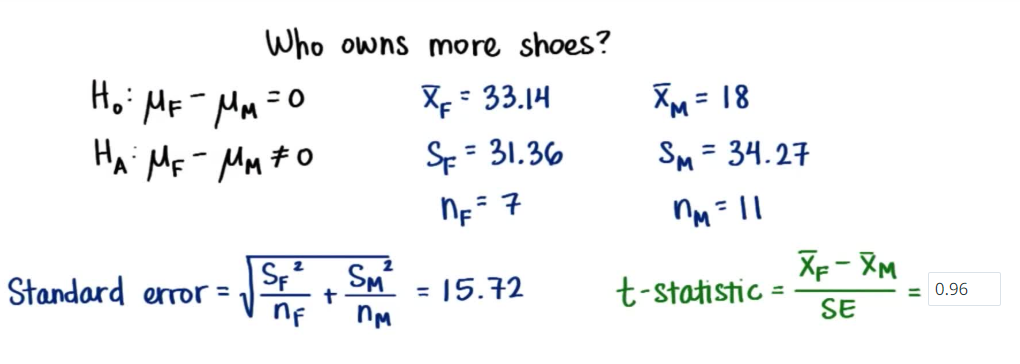 Who owns more shoes?
H₀: μF - μM = 0
HA: μF - μM ≠ 0
x̄F = 33.14
SF = 31.36
nF = 7
x̄M = 18
SM = 34.27
nM = 11
Standard error = √(SF²/nF + SM²/nM) = 15.72
t-statistic = (x̄F - x̄M)/SE = 0.96